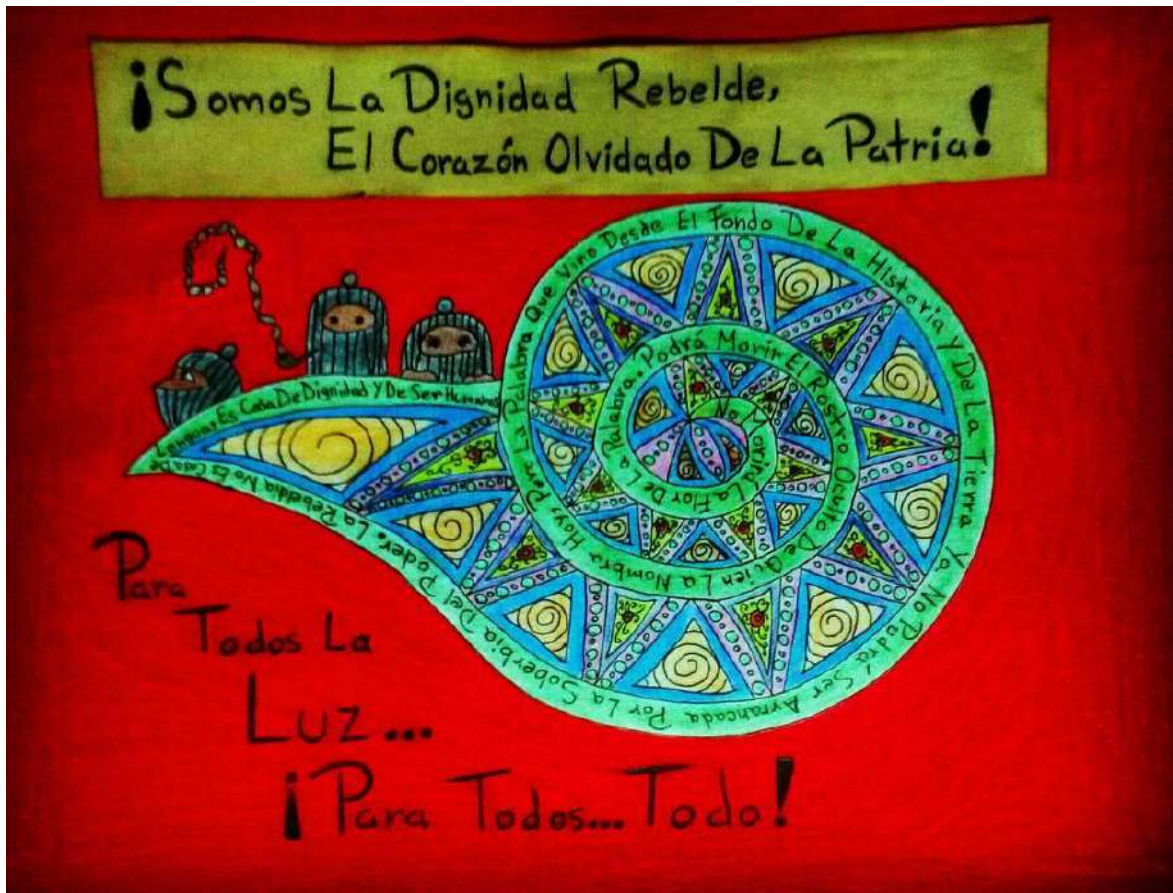 ¡Somos La Dignidad Rebelde,
El Corazón Olvidado De La Patria!
No Morirá La Flor De La Palabra. Podrá Morir El Rostro Oculto De Quien La Nombra Hoy, Pero La Palabra Que Vino Desde El Fondo De La Historia Y De La Tierra Ya No Podrá Ser Arrancada Por La Soberbia Del Poder. La Rebeldía No Es Casa De
Es Casa De Dignidad Y De Ser Humanos
Para
Todos La
Luz...
¡Para Todos...Todo!